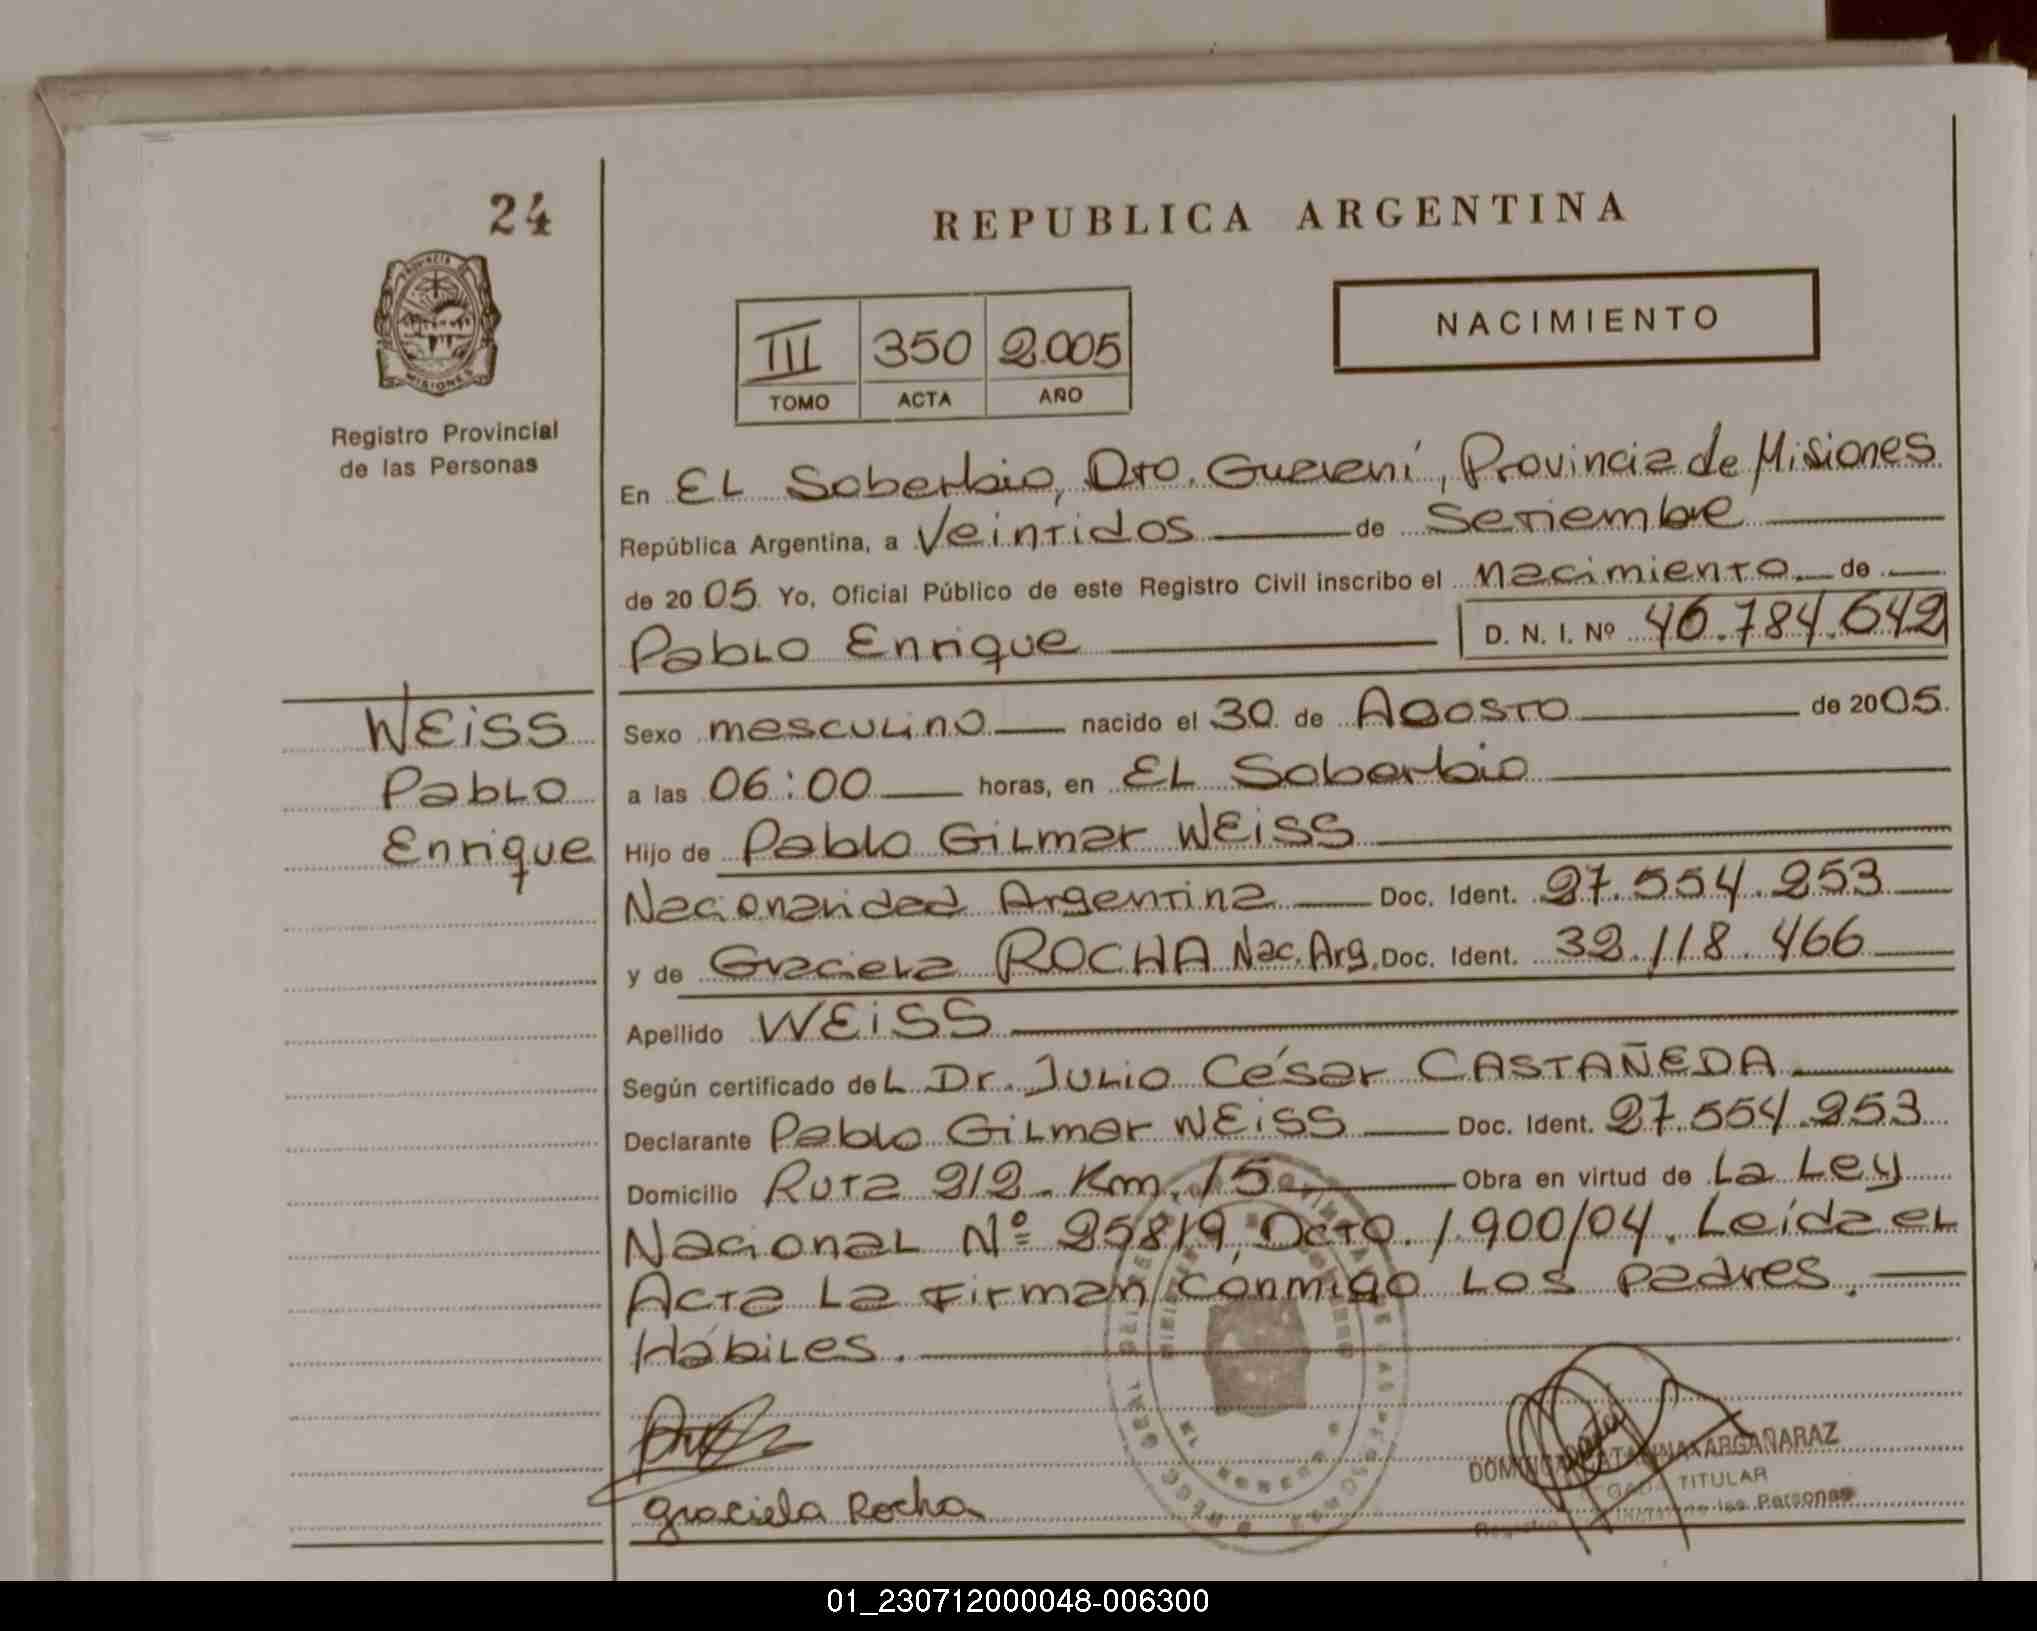 24
REPUBLICA ARGENTINA
PROVINCIA
MISIONES
NACIMIENTO
III 350 2.005
TOMO ACTA AÑO
Registro Provincial
de las Personas
En EL Soberbio, Dto. Guaraní, Provincia de Misiones
República Argentina, a Veintidos de Setiembre
de 2005. Yo, Oficial Público de este Registro Civil inscribo el Nacimiento de
Pablo Enrique D. N. I. Nº 46.784.642
WEISS
Pablo
Enrique
Sexo masculino nacido el 30 de Agosto de 2005.
a las 06:00 horas, en EL Soberbio
Hijo de Pablo Gilmar WEISS
Nacionalidad Argentina Doc. Ident. 27.554.253
y de Graciela ROCHA Nac. Arg. Doc. Ident. 32.118.466
Apellido WEISS
Según certificado del Dr. Julio César CASTAÑEDA
Declarante Pablo Gilmar WEISS Doc. Ident. 27.554.253
Domicilio Ruta 212 - Km. 15 Obra en virtud de La Ley
Nacional Nº 25819, Dcto. 1.900/04. Leída el
Acta La Firman conmigo Los padres.
Hábiles.
Graciela Rocha
ARGAÑARAZ
TITULAR
de las Personas
01_230712000048-006300